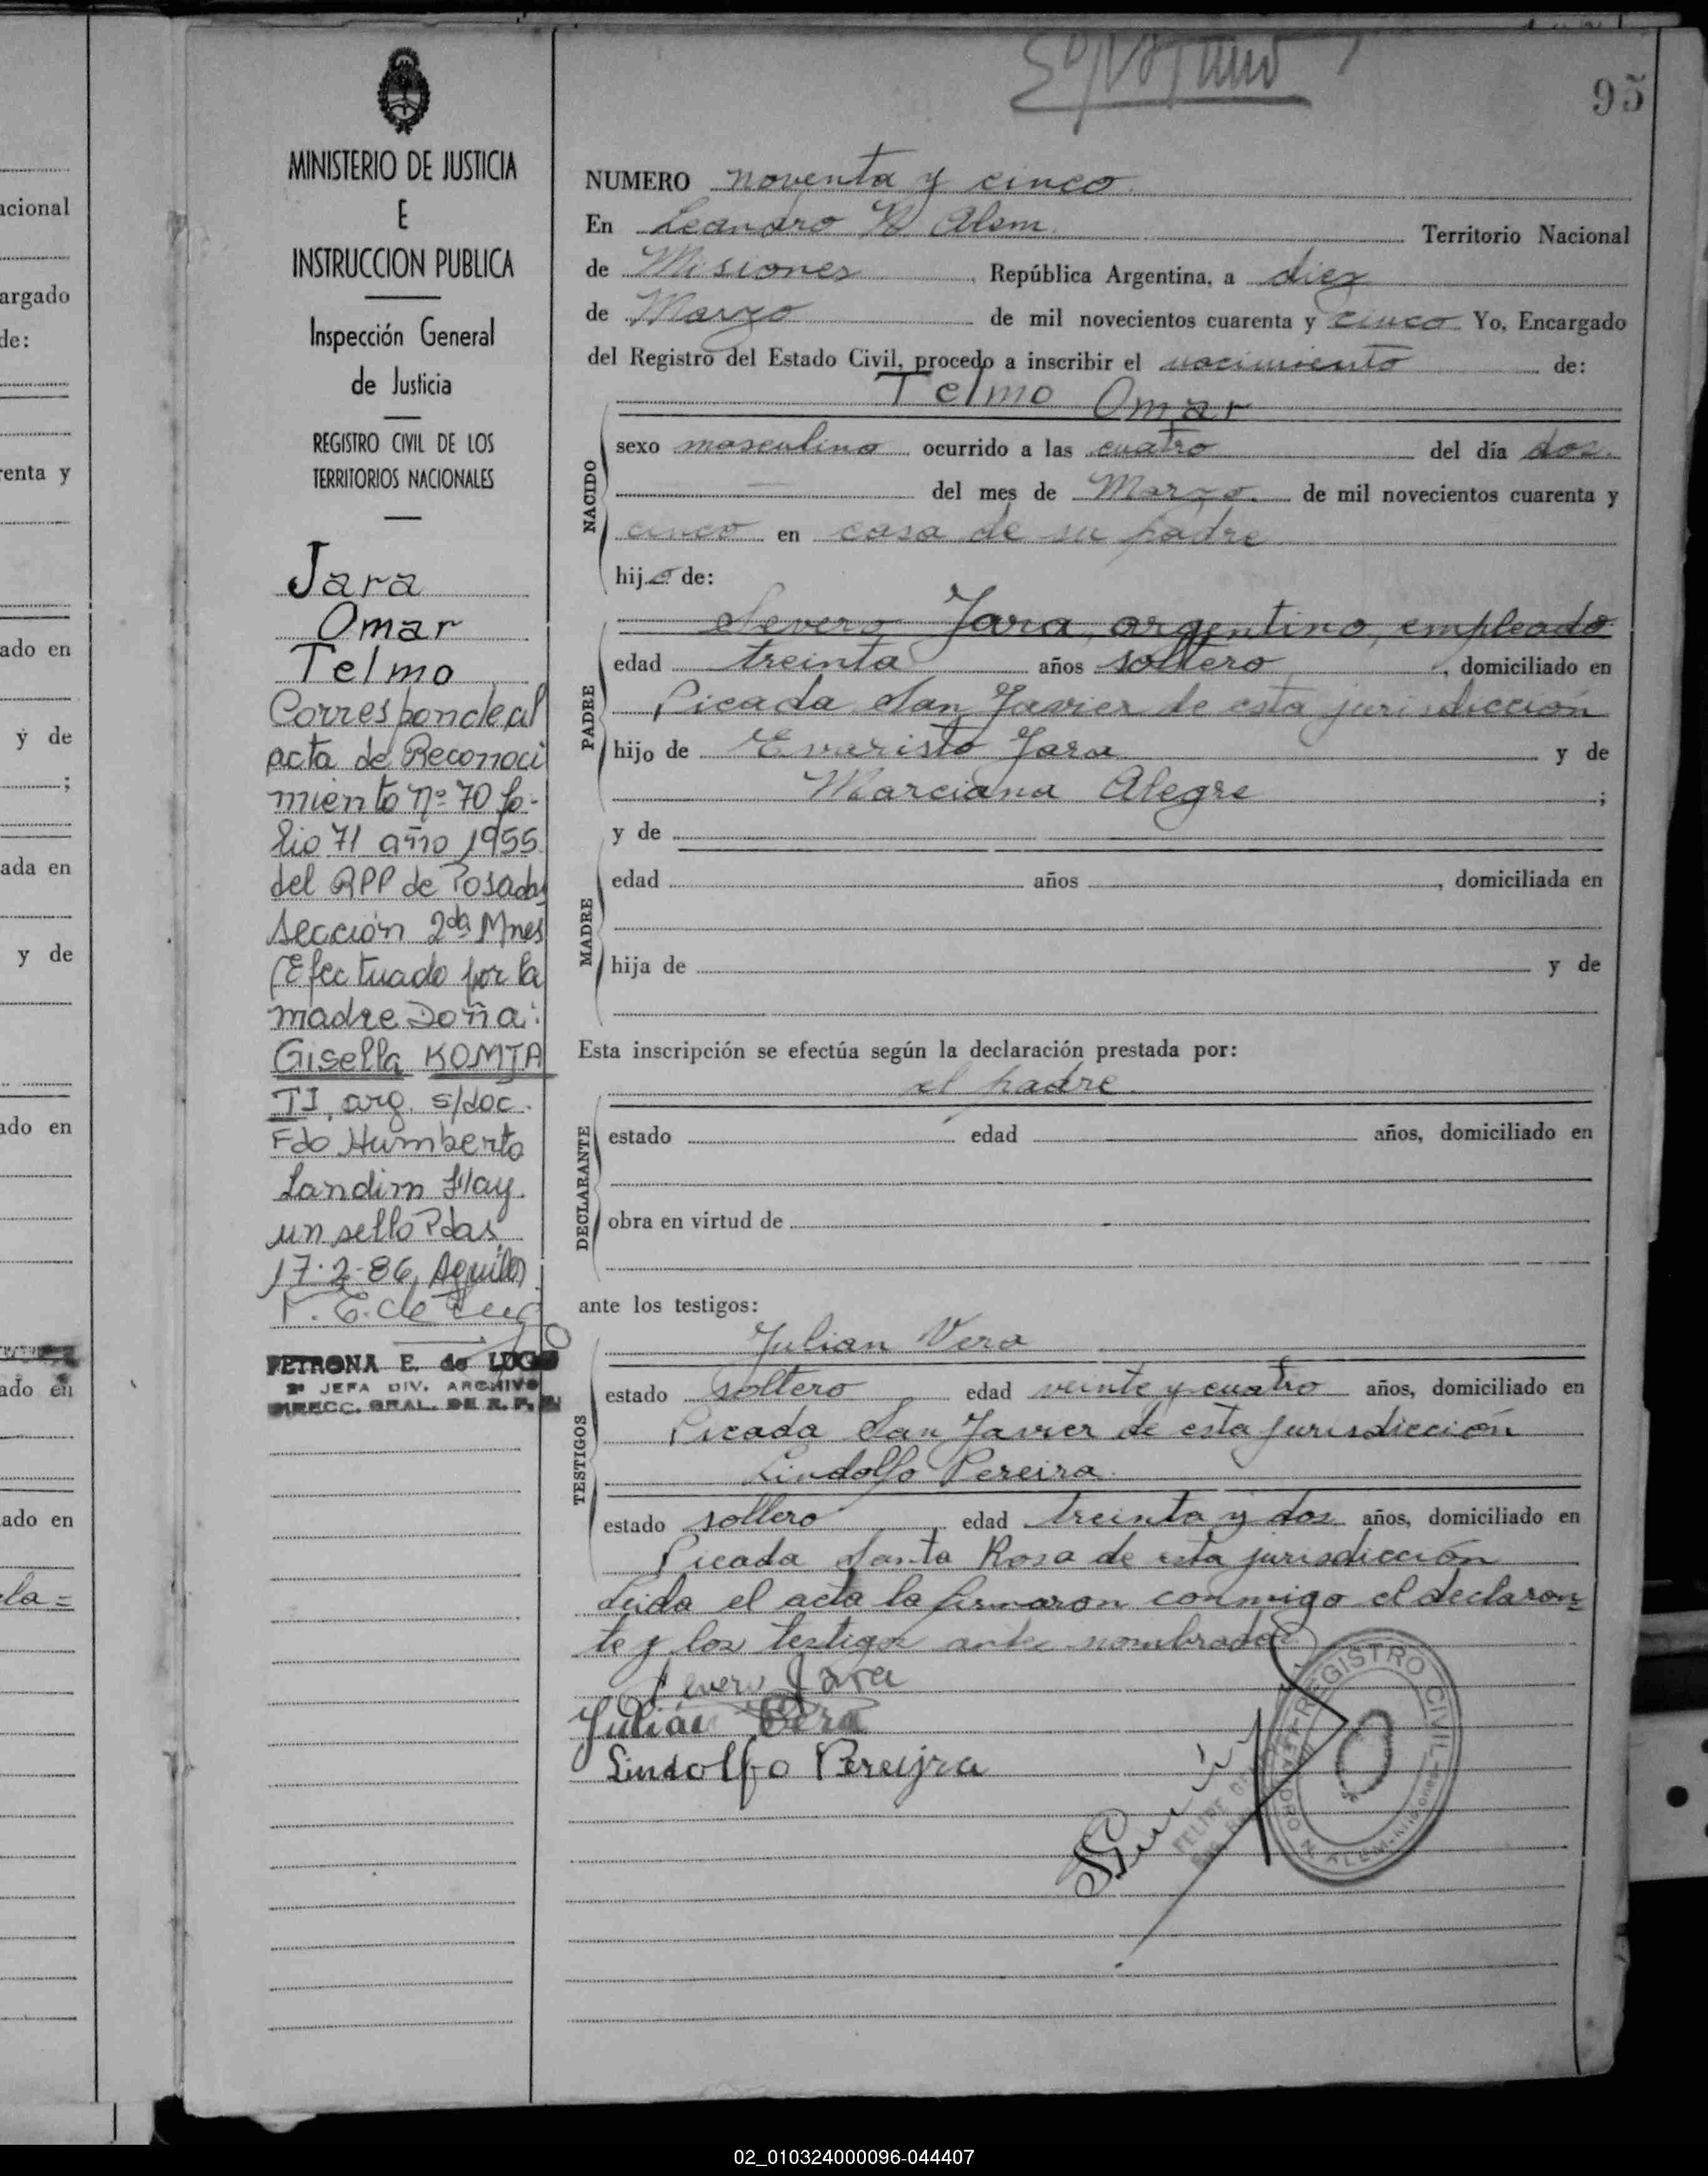 95
MINISTERIO DE JUSTICIA
E
INSTRUCCION PUBLICA
Inspección General
de Justicia
REGISTRO CIVIL DE LOS
TERRITORIOS NACIONALES
Jara
Omar
Telmo
Corresponde al
acta de Reconoci
miento Nº 70 fo-
lio 71 año 1955
del RPP de Posadas
Sección 2da Mnes
(Efectuado por la
madre Doña:
Gisella KOMTA
TI, arg. s/doc.
Fdo Humberto
Landim Hay
un sello Pdas
17-2-86, Aguilar
PETRONA E. de LUGO
2ª JEFA DIV. ARCHIVO
DIRECC. GRAL. DE R. P. P.
NUMERO noventa y cinco
En Leandro N Alem Territorio Nacional
de Misiones, República Argentina, a diez
de Marzo de mil novecientos cuarenta y cinco Yo, Encargado
del Registro del Estado Civil, procedo a inscribir el nacimiento de:
Telmo Omar
NACIDO
sexo masculino ocurrido a las cuatro del día dos
del mes de Marzo de mil novecientos cuarenta y
cinco en casa de su padre
hijo de:
PADRE
Severo Jara, argentino, empleado
edad treinta años soltero, domiciliado en
Picada San Javier de esta jurisdicción
hijo de Evaristo Jara y de
Marciana Alegre ;
MADRE
y de
edad años , domiciliada en
hija de y de
Esta inscripción se efectúa según la declaración prestada por:
el padre.
DECLARANTE
estado edad años, domiciliado en
obra en virtud de
ante los testigos:
TESTIGOS
Julian Vera
estado soltero edad veinte y cuatro años, domiciliado en
Picada San Javier de esta jurisdicción
Lindolfo Pereira
estado soltero edad treinta y dos años, domiciliado en
Picada Santa Rosa de esta jurisdicción
Leida el acta la firmaron conmigo el declaran=
te y los testigos ante nombrados
Severo Jara
Julián Vera
Lindolfo Pereyra
REGISTRO CIVIL
N. ALEM-Misiones
02_010324000096-044407